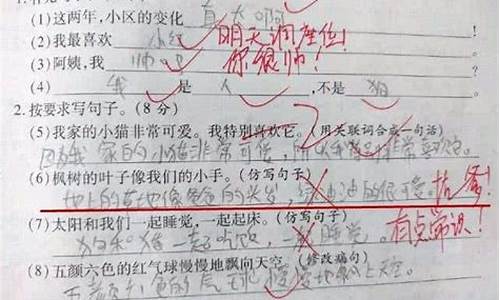 (1)这两年,小区的变化 真大啊
(2)我最喜欢 小红 明天调座位!
(3)阿姨,我 帅吗 你很帅!
(4) 我 是 人 ,不是 狗
2.按要求写句子。(8分)
(5)我家的小猫非常可爱。我特别喜欢它。(用关联词合成一句话)
因为我家的小猫非常可爱,所以我特别非常喜欢它。
(6)枫树的叶子像我们的小手。(仿写句子)
地上的草地像爸爸的头发,绿油油的很可爱。 抗争!
(7)太阳和我们一起睡觉,一起起床。(仿写句子)
狗和猪一起吃饭,一起睡觉。 有点常识!
(8)五颜六色的红气球慢慢地飘向天空。(修改病句)
五颜六色的气球慢慢地飘上天空。